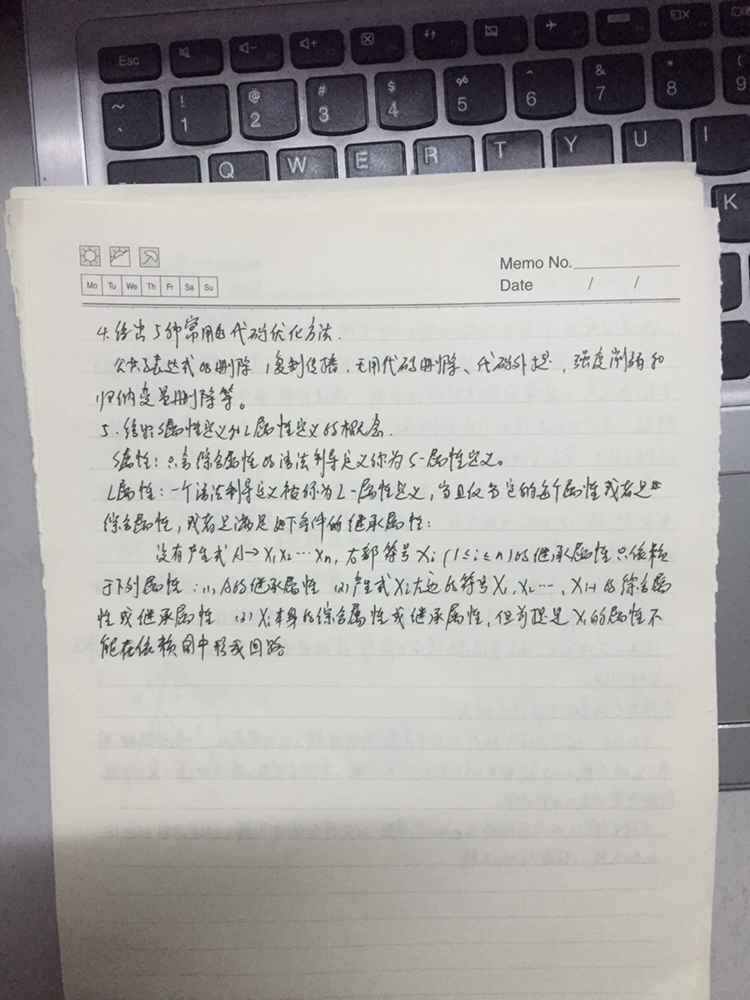 Esc
~ ! @ # $ % ^ & * (
` 1 2 3 4 5 6 7 8 9
Q W E R T Y U I
K
Memo No.
Mo Tu We Th Fr Sa Su
Date / /
4.给出5种常用的代码优化方法.
公共子表达式的删除,复制传播,无用代码删除、代码外提,强度削弱和
归纳变量删除等。
5.给出S属性定义和L属性定义的概念.
S属性:只含综合属性的语法制导定义称为S-属性定义。
L属性:一个语法制导定义被称为L-属性定义,当且仅当它的每个属性或者是
综合属性,或者是满足如下条件的继承属性:
设有产生式A→X1X2…Xn,右部符号Xi(1≤i≤n)的继承属性只依赖
于下列属性:(1)A的继承属性 (2)产生式Xi左边的符号X1,X2…,Xi-1的综合属
性或继承属性 (3)Xi本身的综合属性或继承属性,但前提是Xi的属性不
能在依赖图中形成回路